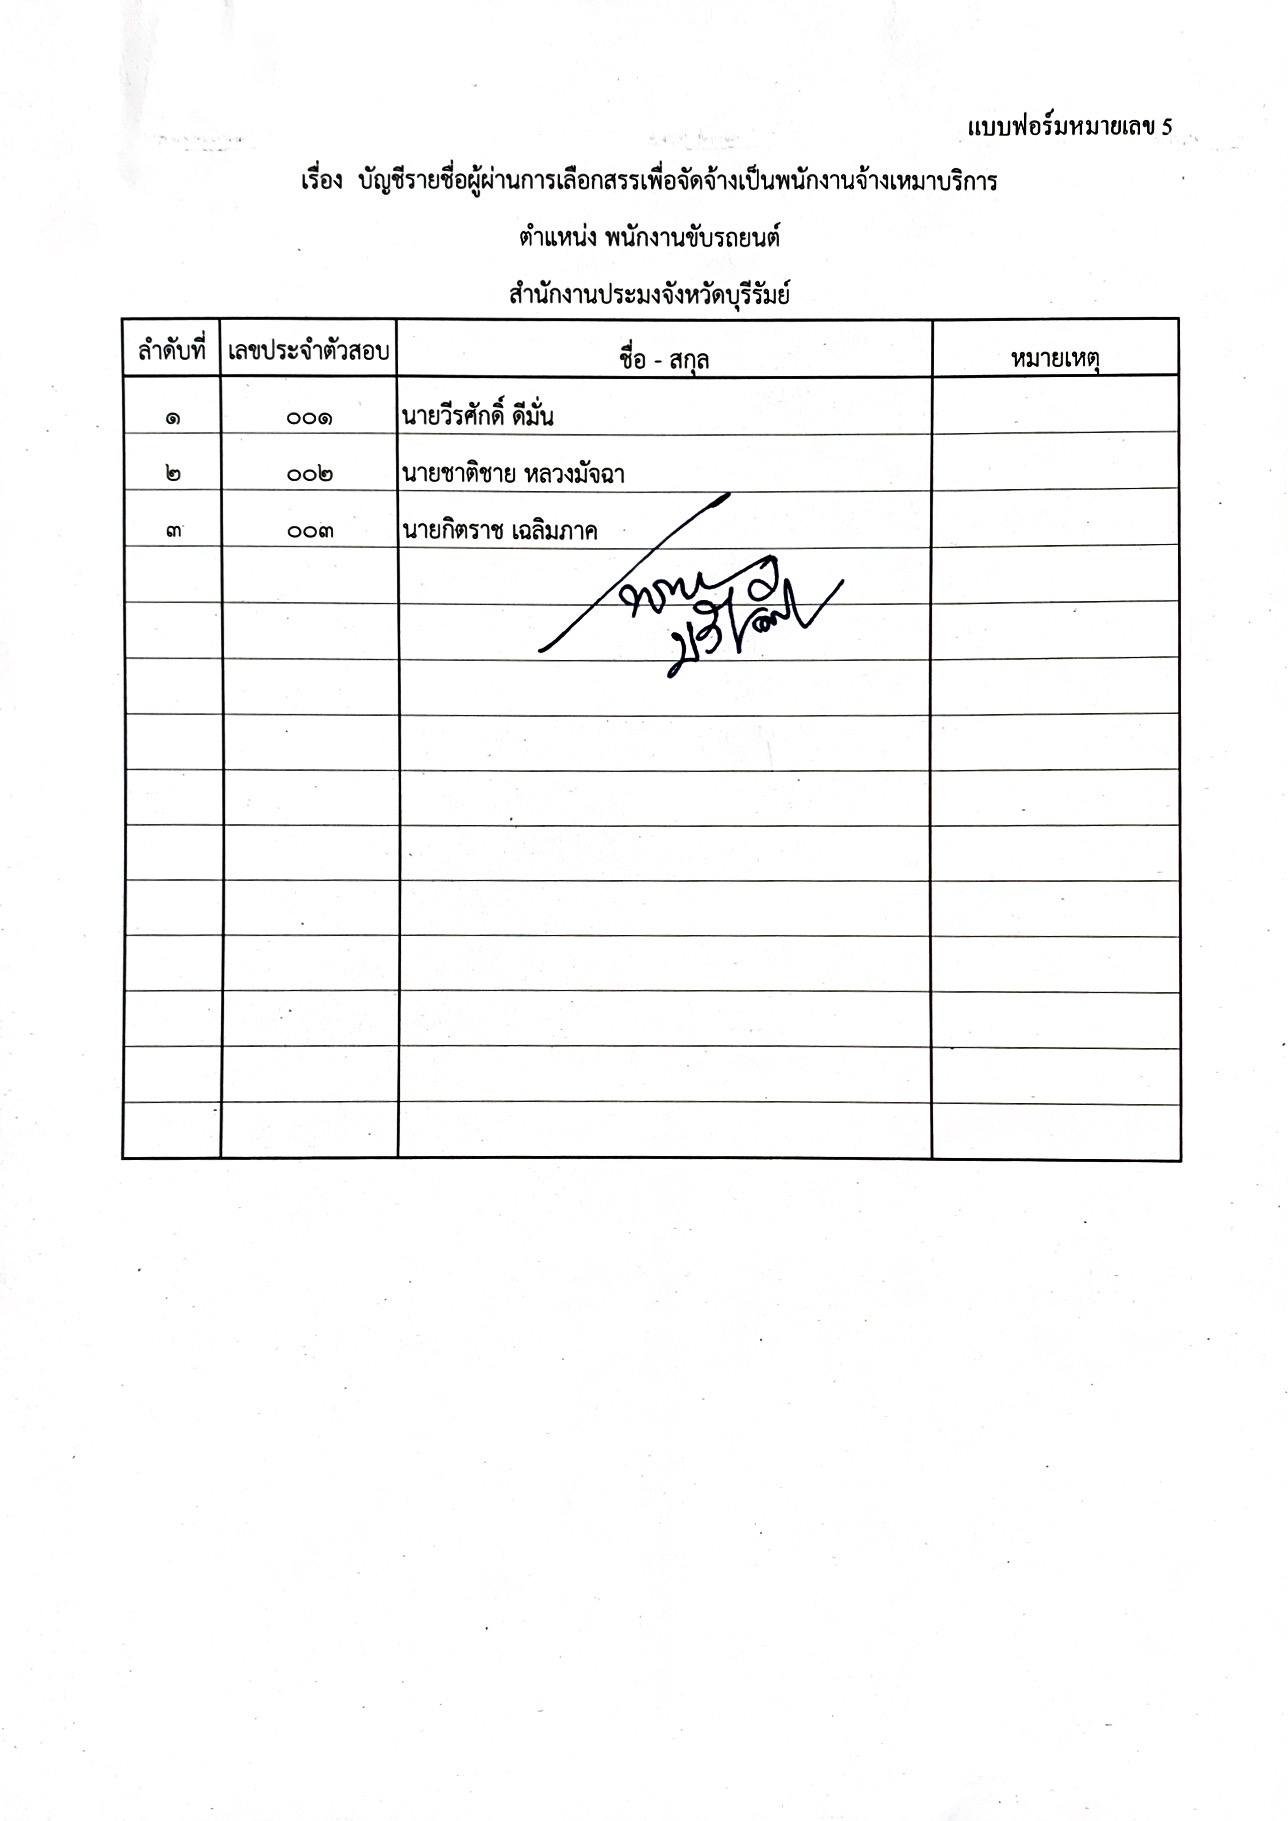 แบบฟอร์มหมายเลข 5
เรื่อง บัญชีรายชื่อผู้ผ่านการเลือกสรรเพื่อจัดจ้างเป็นพนักงานจ้างเหมาบริการ
ตำแหน่ง พนักงานขับรถยนต์
สำนักงานประมงจังหวัดบุรีรัมย์
ลำดับที่ เลขประจำตัวสอบ ชื่อ - สกุล หมายเหตุ
๑ ๐๐๑ นายวีรศักดิ์ ดีมั่น
๒ ๐๐๒ นายชาติชาย หลวงมัจฉา
๓ ๐๐๓ นายกิตราช เฉลิมภาค